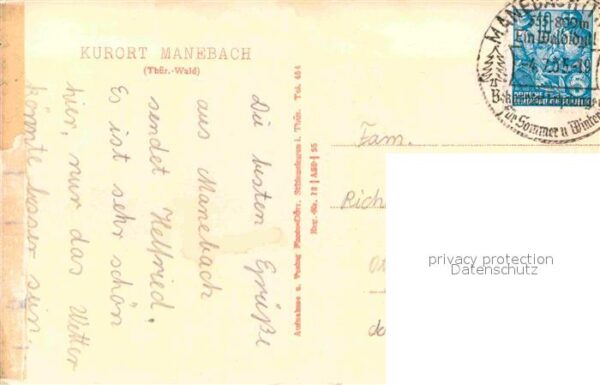 KURORT MANEBACH
(Thür.-Wald)
Die besten Grüße
aus Manebach
sendet Helfried.
Es ist sehr schön
hier, nur das Wetter
könnte besser sein.
Aufnahme u. Verlag
i. Thür. Tel. 454
Reg.-Nr.
MANEBACH
Ein Waldidyll
für Sommer u Winter
Fam.
Rich
privacy protection
Datenschutz